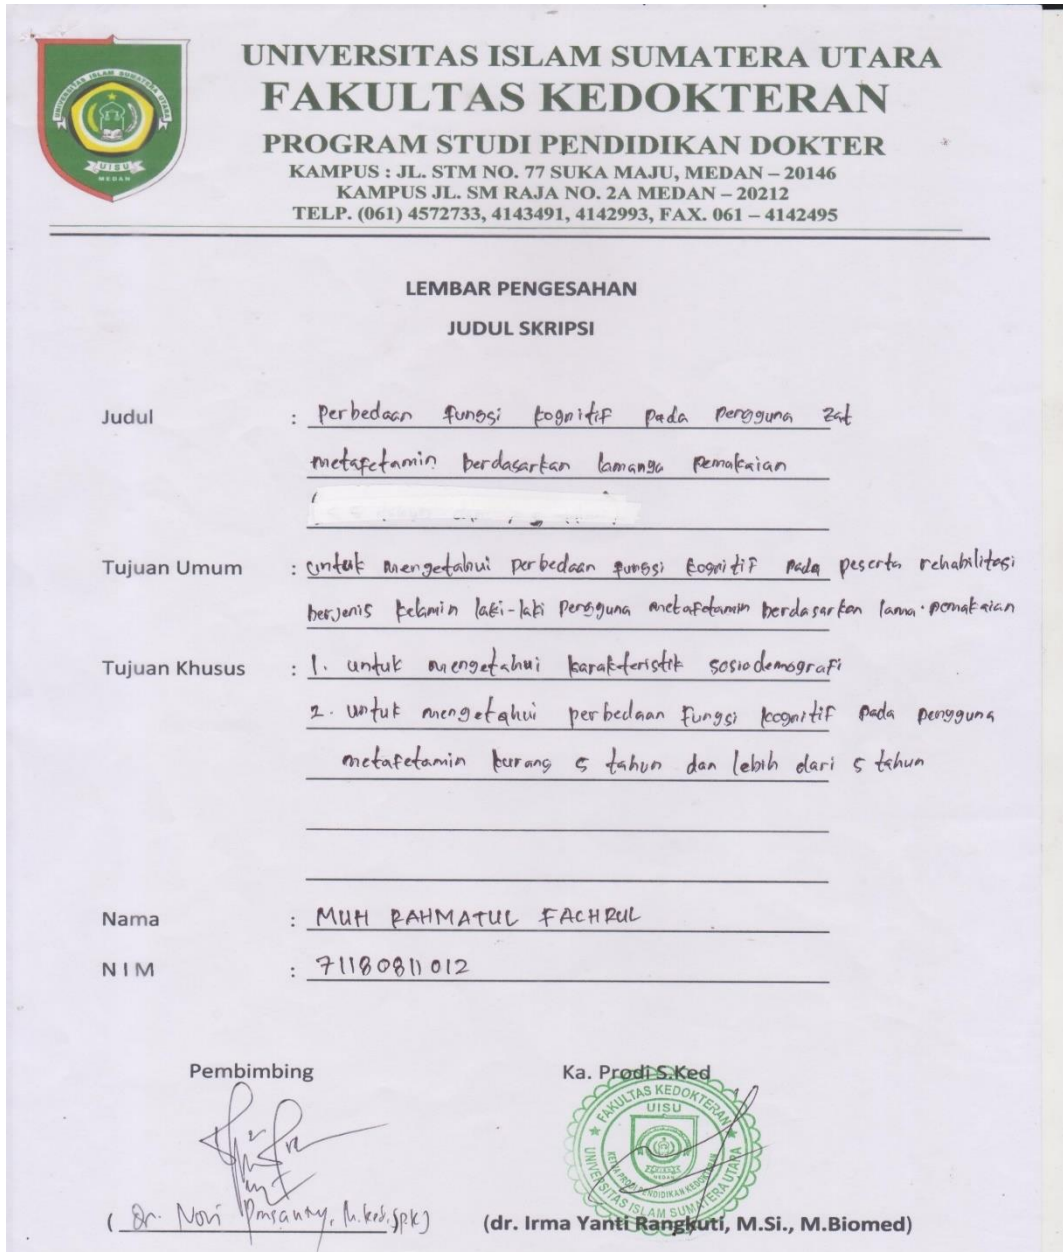 UNIVERSITAS ISLAM SUMATERA UTARA
FAKULTAS KEDOKTERAN
PROGRAM STUDI PENDIDIKAN DOKTER
KAMPUS : JL. STM NO. 77 SUKA MAJU, MEDAN – 20146
KAMPUS JL. SM RAJA NO. 2A MEDAN – 20212
TELP. (061) 4572733, 4143491, 4142993, FAX. 061 – 4142495
UNIVERSITAS ISLAM SUMATERA UTARA
UISU
MEDAN
LEMBAR PENGESAHAN
JUDUL SKRIPSI
Judul : Perbedaan fungsi kognitif pada pengguna zat
metafetamin berdasarkan lamanya pemakaian
Tujuan Umum : untuk mengetahui perbedaan fungsi kognitif pada peserta rehabilitasi
berjenis kelamin laki-laki pengguna metafetamin berdasarkan lama pemakaian
Tujuan Khusus : 1. untuk mengetahui karakteristik sosiodemografi
2. untuk mengetahui perbedaan fungsi kognitif pada pengguna
metafetamin kurang 5 tahun dan lebih dari 5 tahun
Nama : MUH RAHMATUL FACHRUL
NIM : 71180811012
Pembimbing
Ka. Prodi S.Ked
FAKULTAS KEDOKTERAN
UISU
MEDAN
UNIVERSITAS ISLAM SUMATERA UTARA
( Dr. Novi
(dr. Irma Yanti Rangkuti, M.Si., M.Biomed)